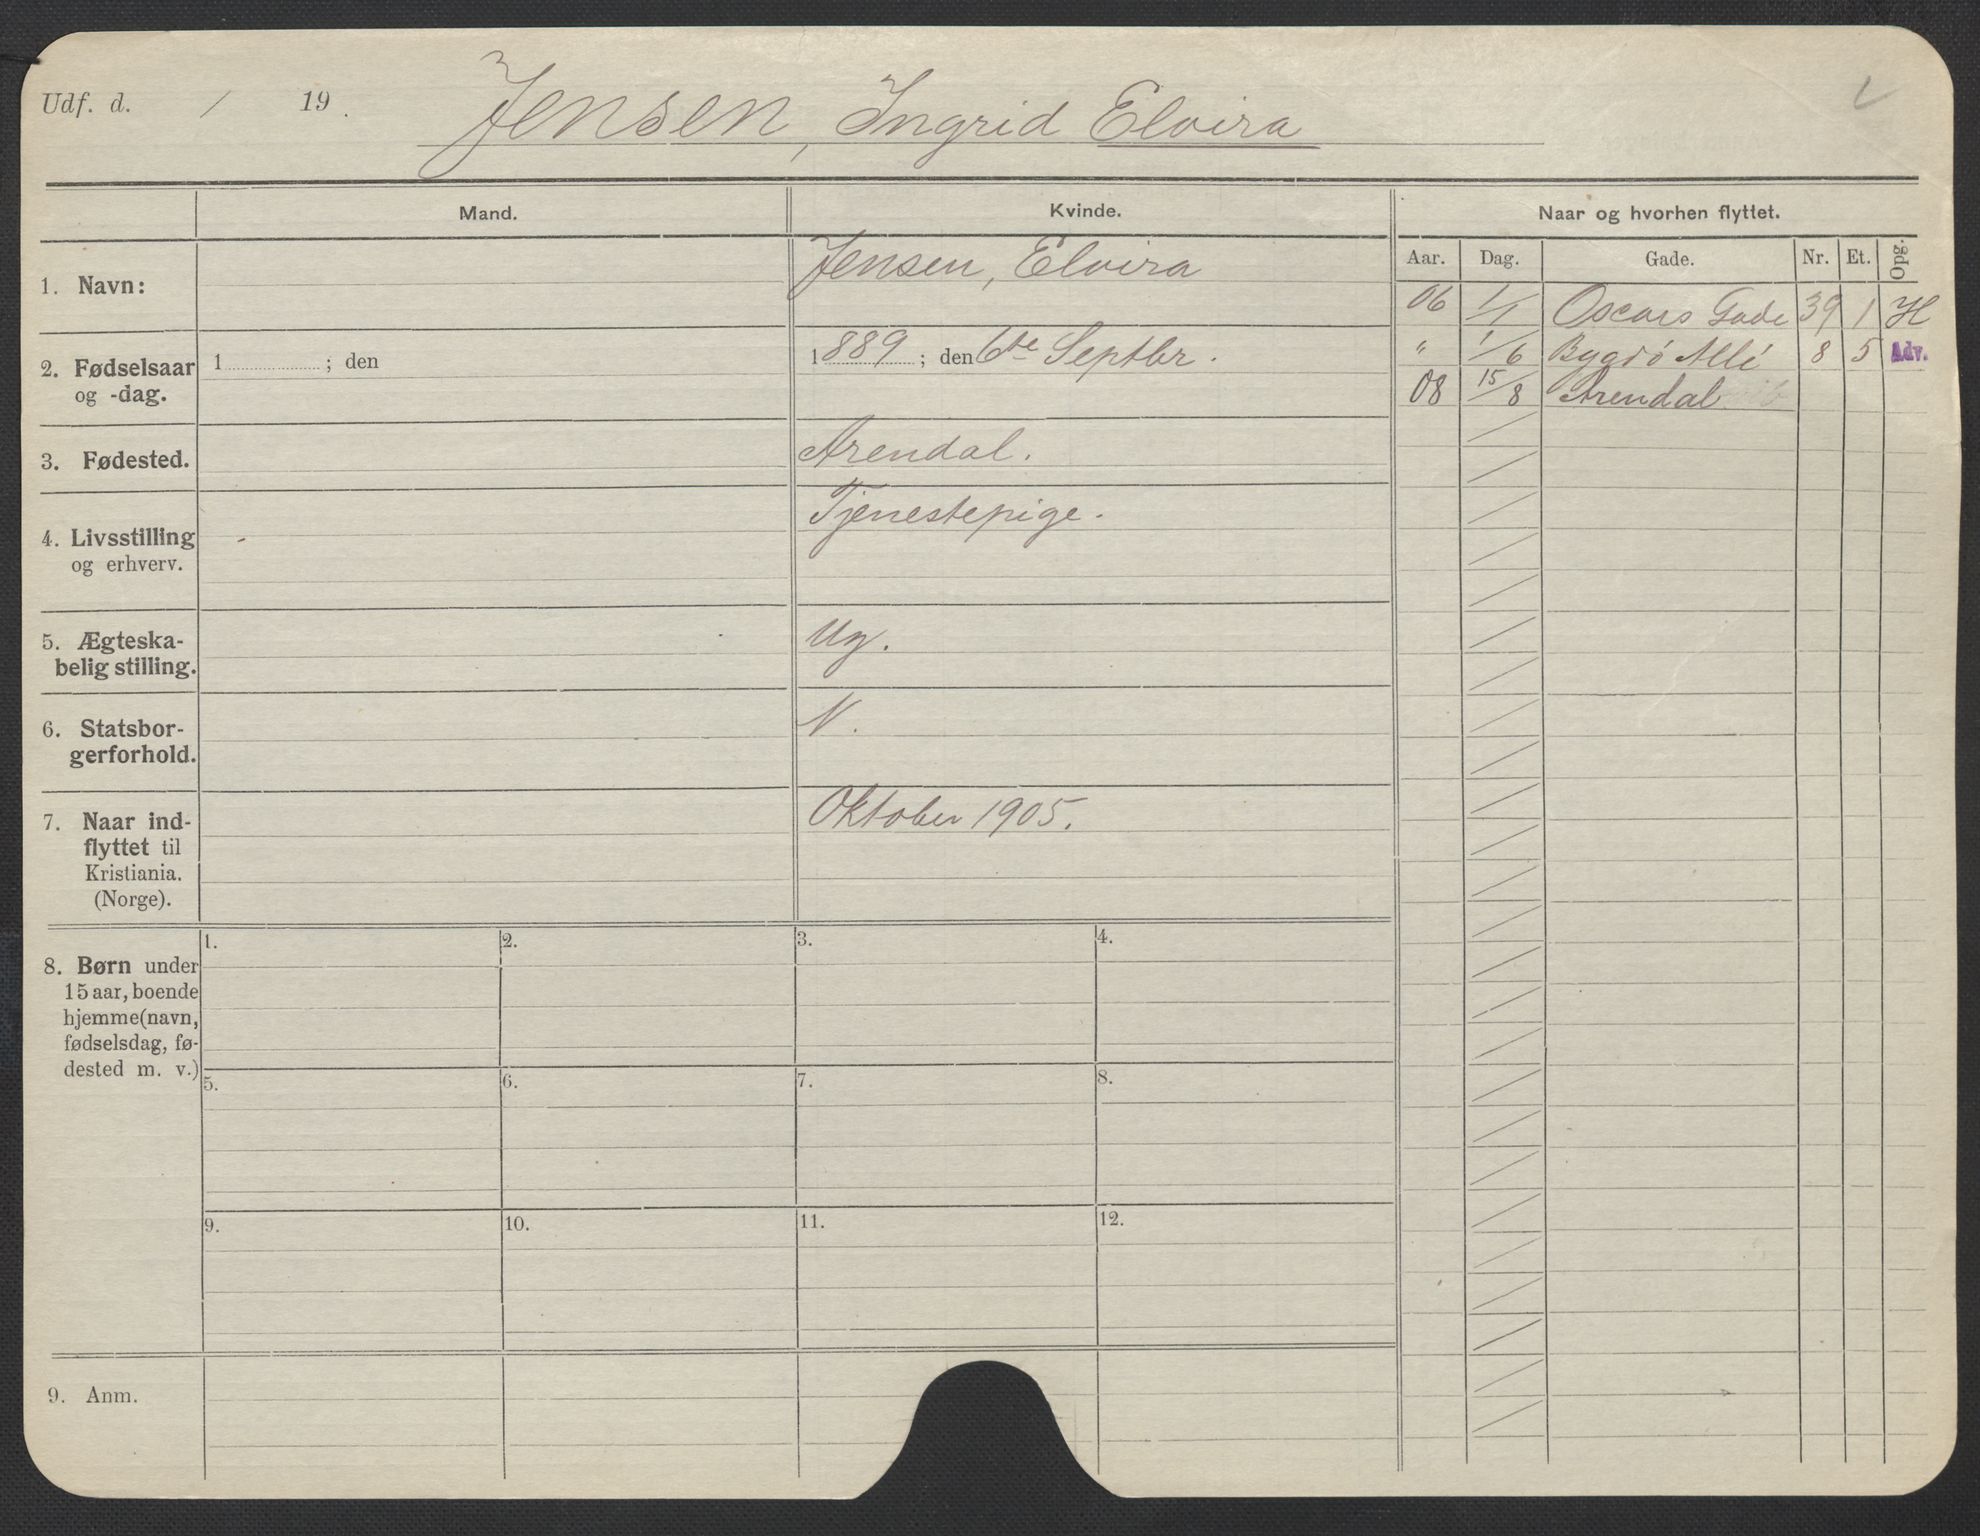 Udf. d. / 19 .
Jensen, Ingrid Elvira
Mand. Kvinde. Naar og hvorhen flyttet.
Aar. Dag. Gade. Nr. Et. Opg.
1. Navn: Jensen, Elvira
06 1/1 Oscars Gade 39 1 H
2. Fødselsaar og -dag. 1 ; den 1889 ; den 6te Septbr.
" 1/6 Bygdö Allé 8 5 Adv.
08 15/8 Arendal
3. Fødested. Arendal.
4. Livsstilling og erhverv. Tjenestepige.
5. Ægteska-
belig stilling. Ug.
6. Statsbor-
gerforhold. N.
7. Naar ind- Oktober 1905.
flyttet til
Kristiania.
(Norge).
8. Børn under
15 aar, boende
hjemme (navn,
fødselsdag, fø-
dested m. v.)
1. 2. 3. 4.
5. 6. 7. 8.
9. 10. 11. 12.
9. Anm.